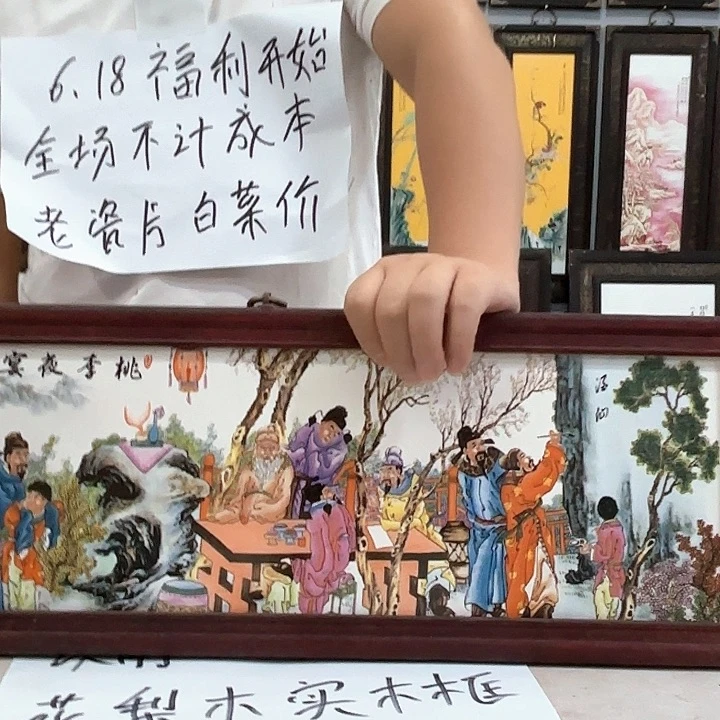 6.18 福利开始
全场不计成本
老瓷片 白菜价
宴夜李桃
酒仙
花梨木实木框